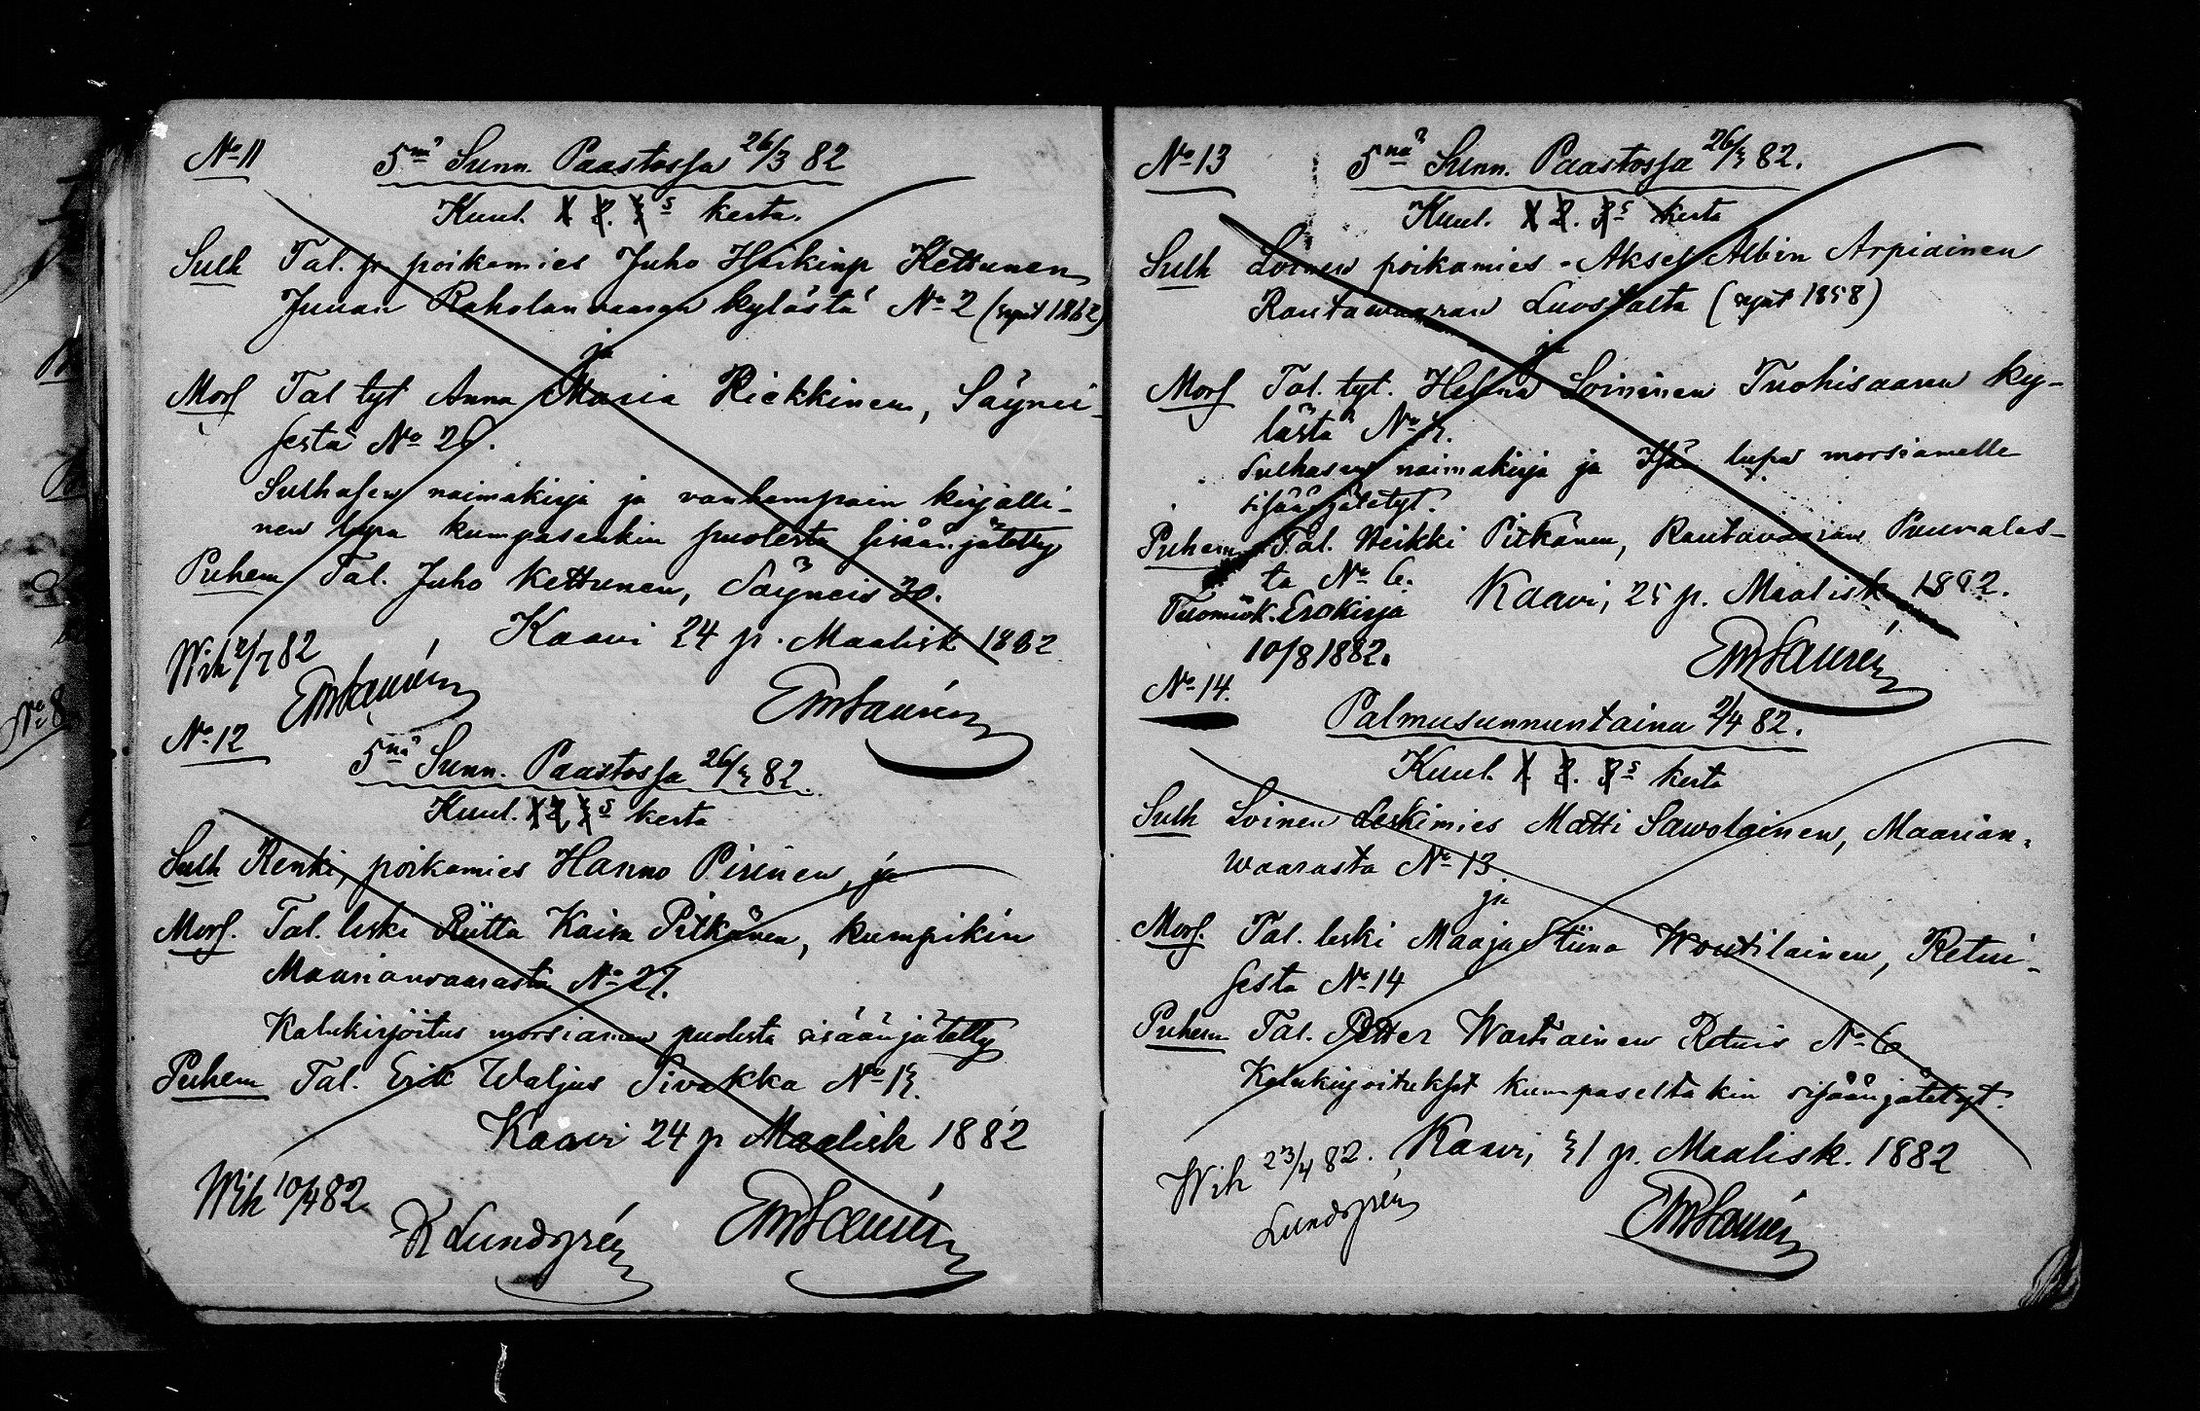 No 11
5nä Sunn. Paastossa 26/3 82
Kuul. 1 2. 3s kerta.
Sulh Tal. p. poikamies Juho Heikinp Kettunen
Juuan Raholanvaaran kylästä No 2 (synt 1862)
ja
Mors Tal tyt Anna Maria Riekkinen, Säynei-
sestä No 20.
Sulhasen naimakirja ja vanhempain kirjalli-
nen lupa kumpasenkin puolesta sisäänjätetty
Puhem Tal. Juho Kettunen, Säyneis 20.
Kaavi 24 p. Maalisk 1882
Wih 2/7 82
EmLaurén
EmLaurén
No 12
5nä Sunn. Paastossa 26/3 82.
Kuul. 1 2 3s kerta
Sulh Renki, poikamies Hanno Pirinen, ja
Mors. Tal. leski Riitta Kaisa Pitkänen, kumpikin
Maarianvaarasta No 27.
Kalukirjoitus morsiamen puolesta sisäänjätetty
Puhem Tal. Erik Waljus Sivakka No 13.
Kaavi 24 p Maalisk 1882
Wih 10/4 82.
K Lundgrén
EmLaurén
No 13
5nä Sunn. Paastossa 26/3 82.
Kuul. 1 2. 3s kerta
Sulh Loinen poikamies Aksel Albin Arpiainen
Rautawaaran Luostalta (synt 1858)
ja
Mors Tal. tyt. Helena Loininen Tuohisaaren ky-
lästä No 3.
Sulhasen naimakirja ja Isän lupa morsiamelle
sisäänjätetyt.
Puhem Tal. Heikki Pitkänen, Rautavaaran Puuvalas-
ta No 6.
Kaavi, 25 p. Maalisk 1882.
Tuomiok. Erokirja
10/8 1882.
EmLaurén
No 14.
Palmusunnuntaina 2/4 82.
Kuul. 1 2. 3s kerta
Sulh Loinen Leskimies Matti Sawolainen, Maarian-
waarasta No 13
ja
Mors. Tal. leski Maaja Stiina Woutilainen, Retui-
sesta No 14
Puhem Tal. Petter Wartiainen Retuis No 6
Kalukirjoitukset kumpaseltakin sisäänjätetyt.
Kaavi, 31 p. Maalisk. 1882
Wih 23/4 82.
Lundgrén
EmLaurén